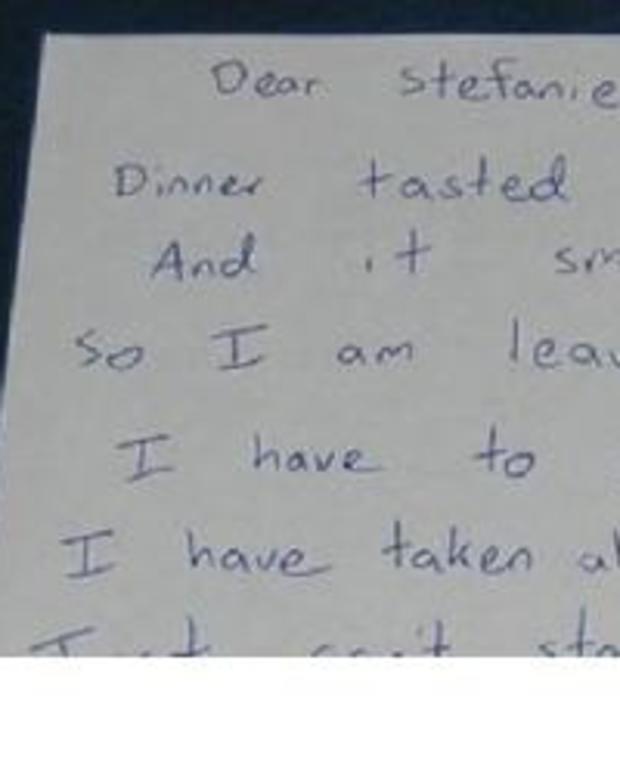 Dear Stefanie
Dinner tasted
And it sm
So I am leav
I have to
I have taken al